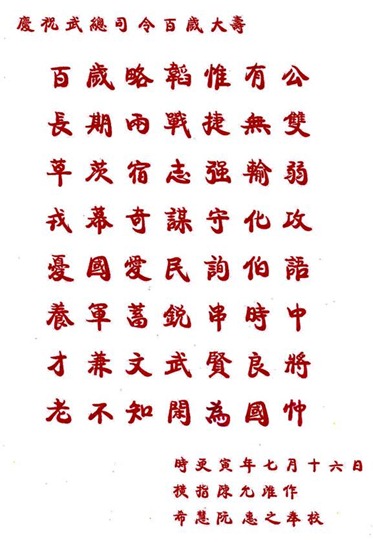 慶祝武總司令百歲大壽
百歲略韜惟有公
長期兩戰捷無雙
草茨宿志强輸弱
戎幕奇謀守化攻
憂國愛民詢伯語
養軍蓄銳串時中
才兼文武賢良將
老不知閑為國忡
時更寅年七月十六日
撲指陳允准作
希慧阮惠之奉校